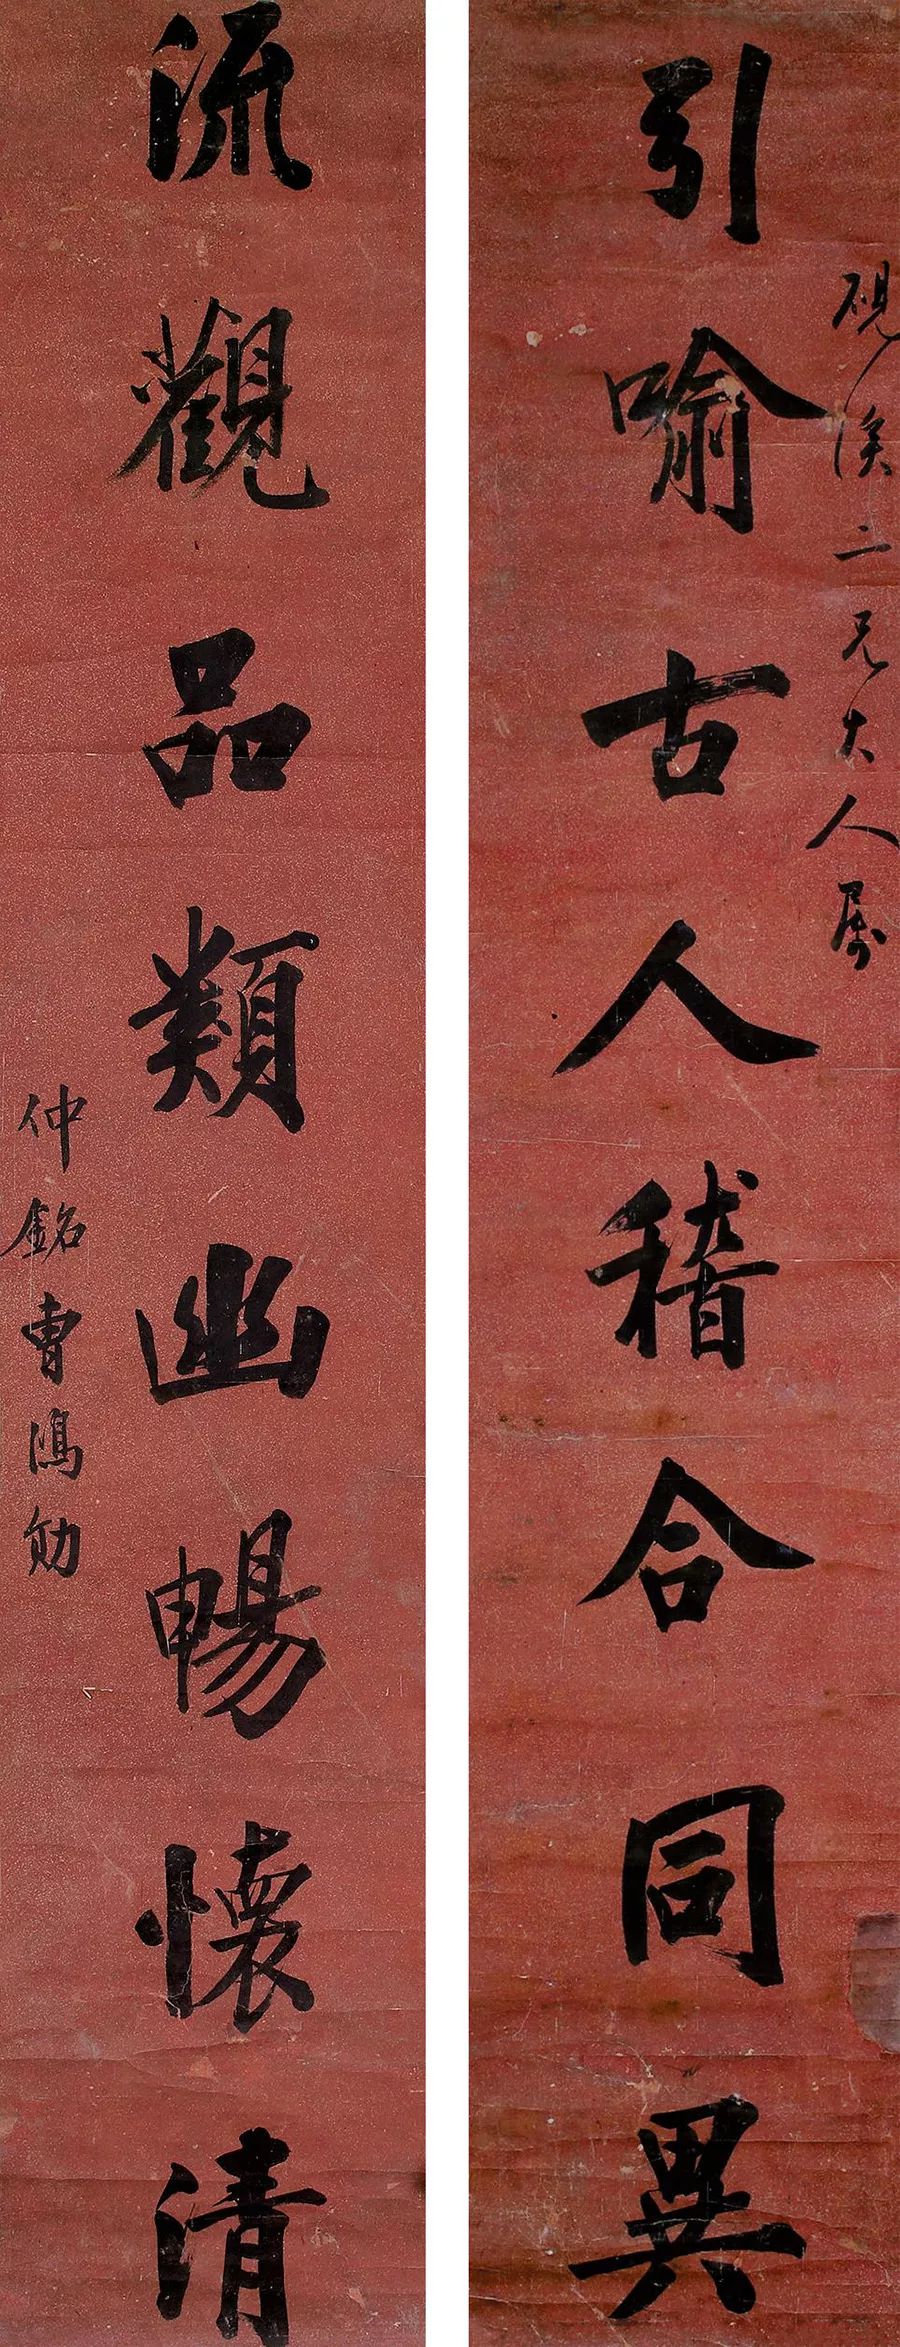 硯溪二兄大人属
引喻古人稽合同異
流觀品類幽暢懷清
仲銘曹鴻勛